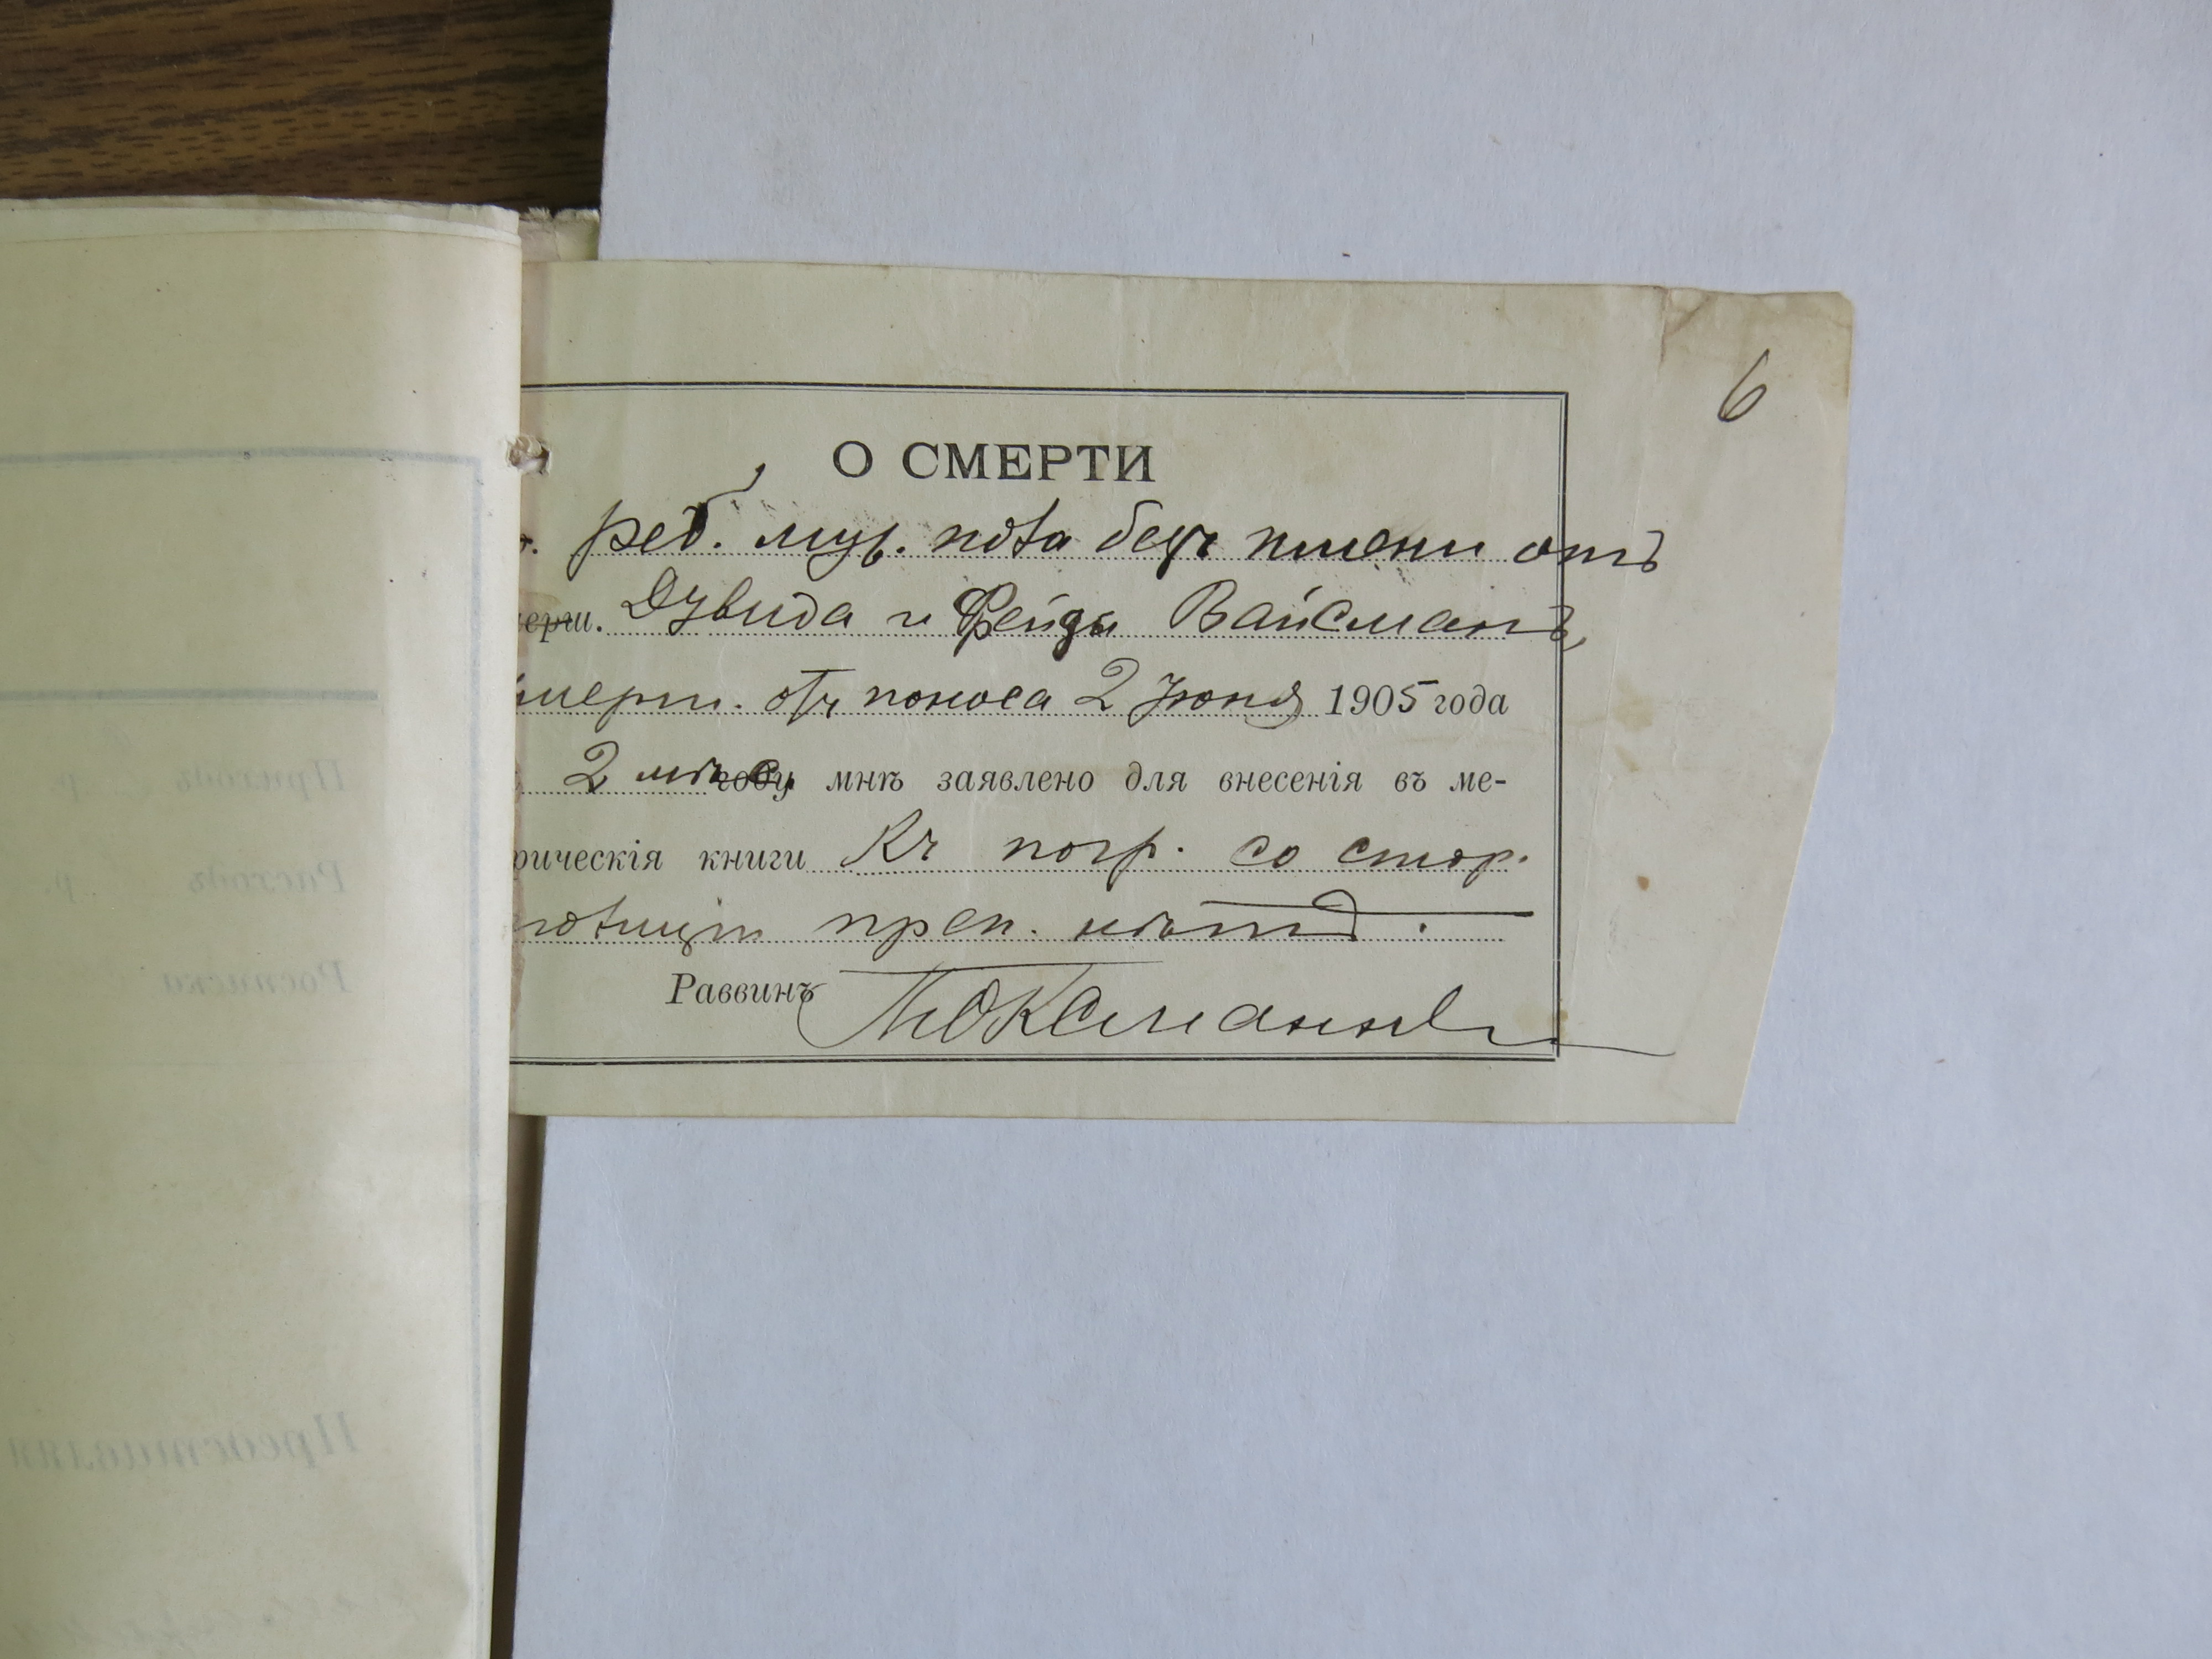 6
О СМЕРТИ
реб. муж. пола безъ имени отъ
Дувида и Фейги Вайсманъ,
умерш. отъ поноса 2 Іюня 1905 года
2 мѣс. году мнѣ заявлено для внесенія въ ме-
рическія книги Къ погр. со стор.
преп. нѣтъ.
Раввинъ
Приходъ р.
Расходъ р.
Росписки
Представляя